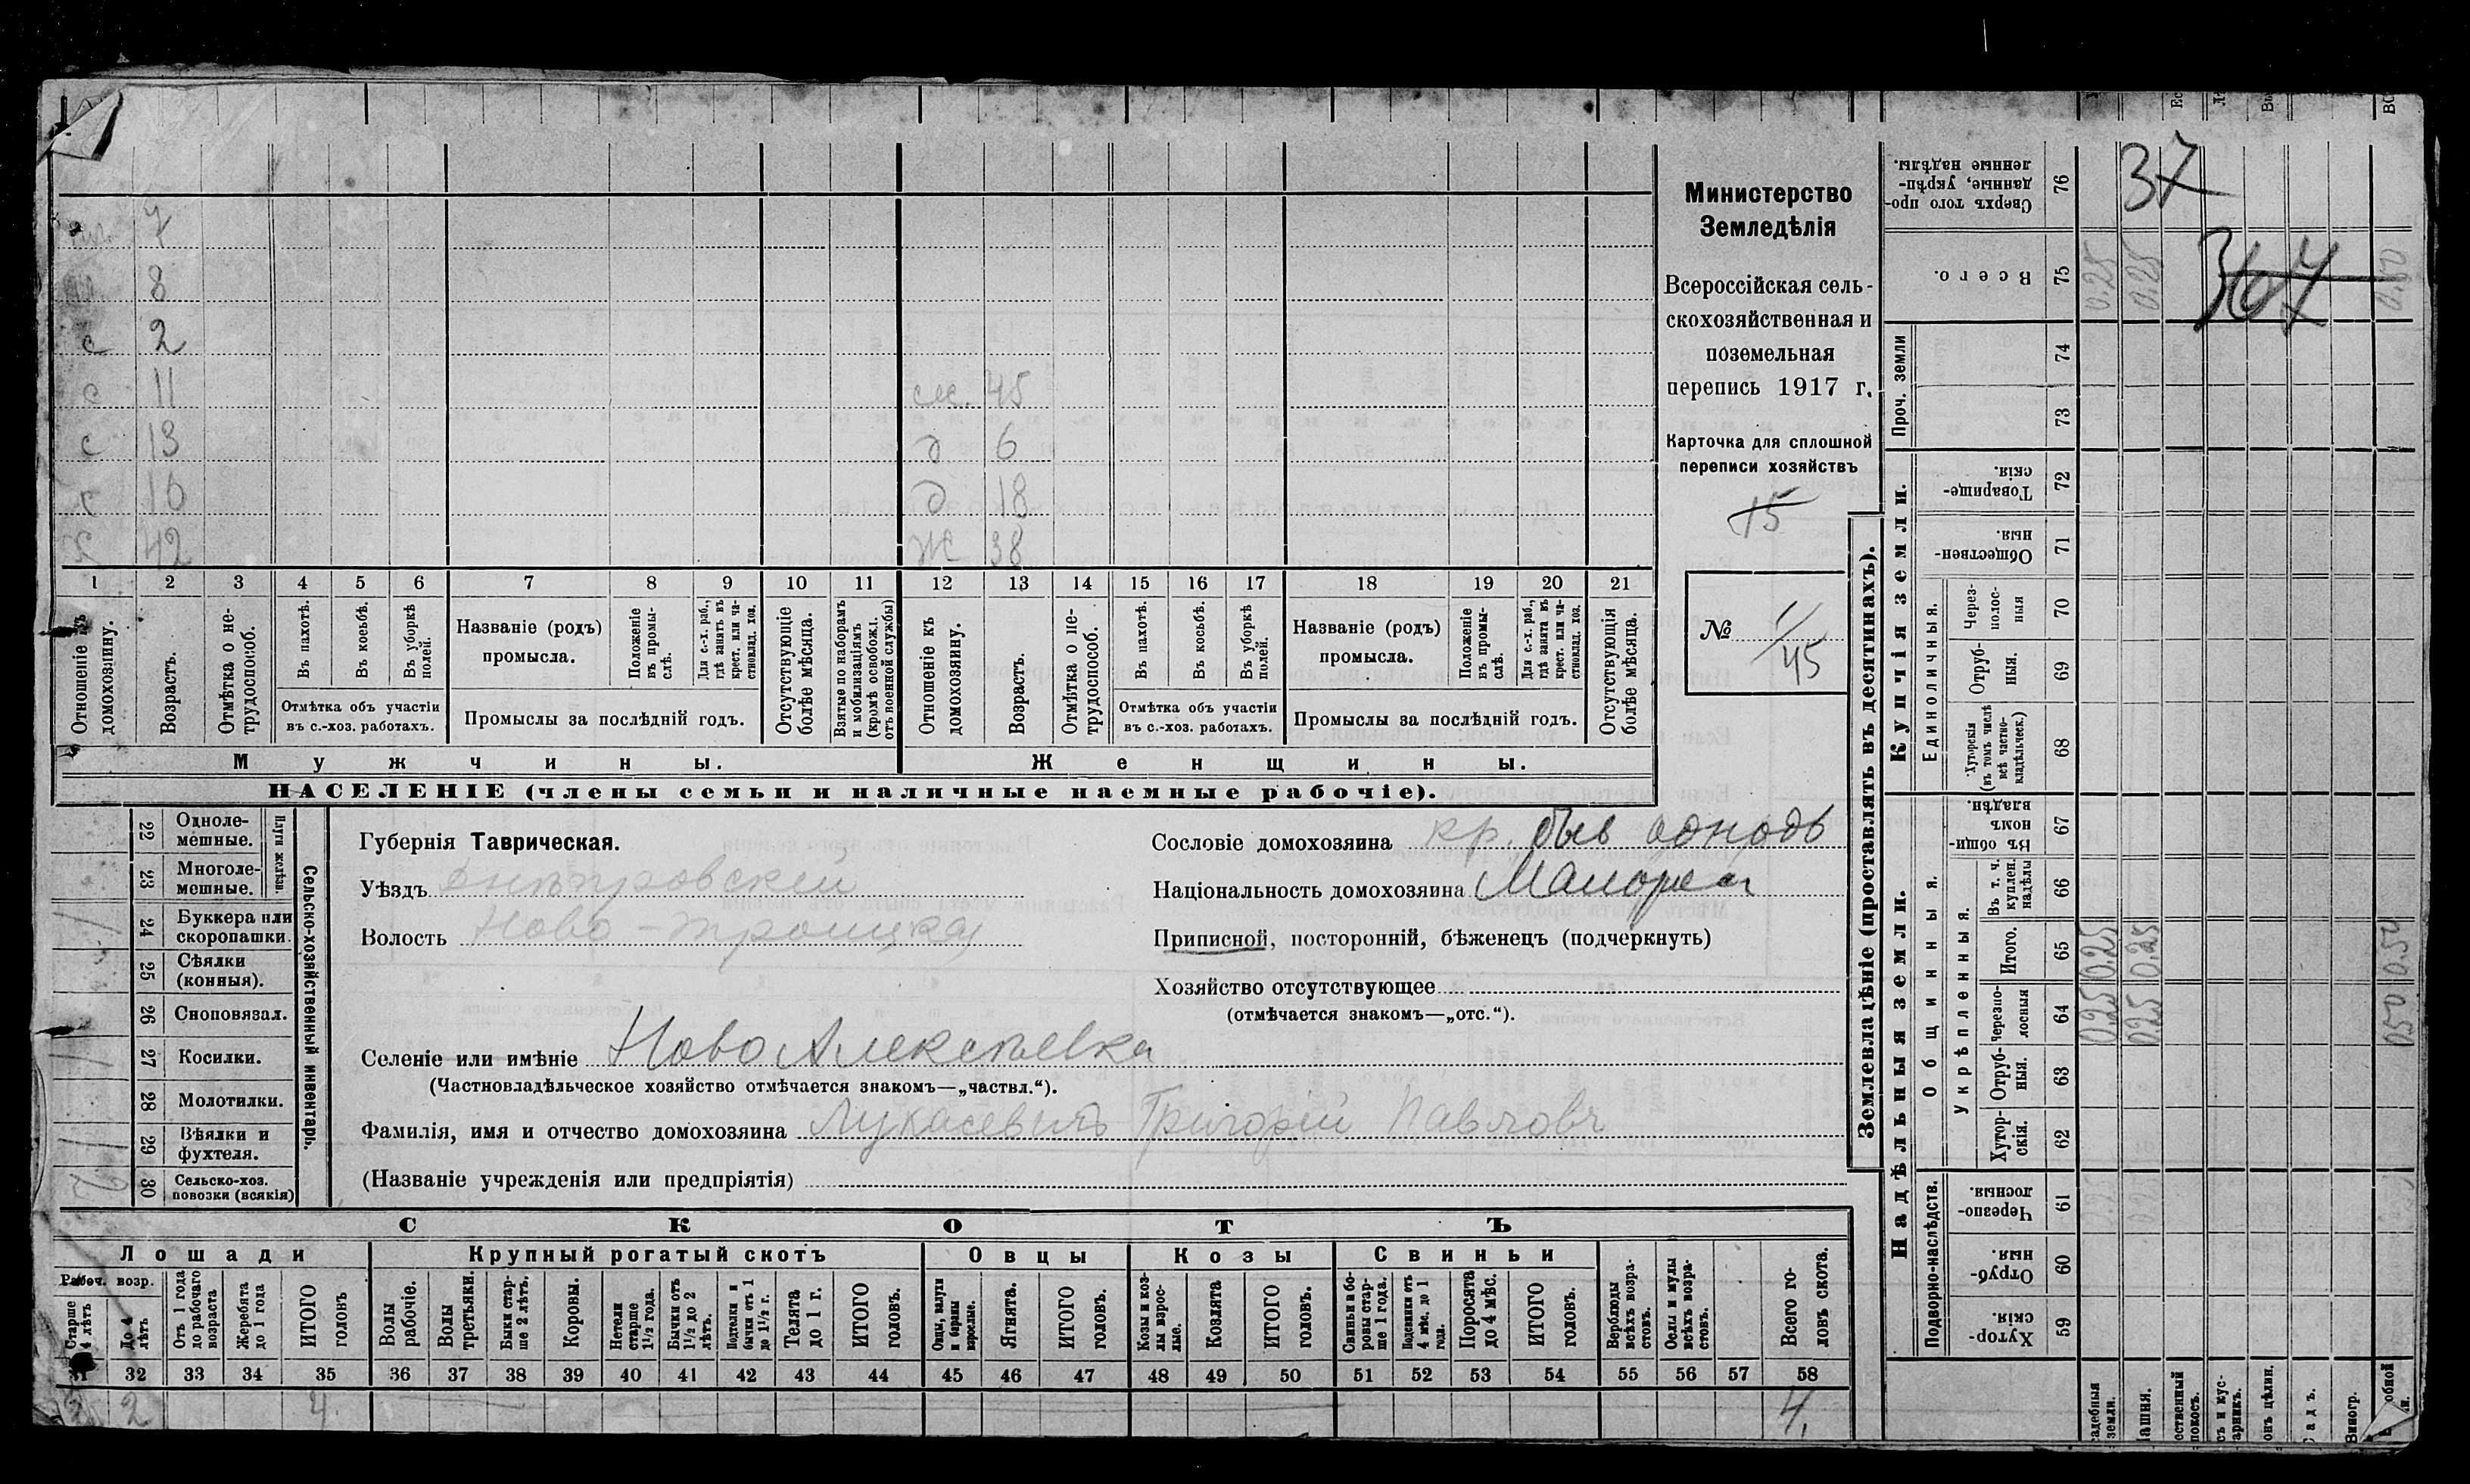 7
8
с 2
с 11 м. 45
с 13 д 6
с 16 д 18
х 42 ж 38
1 2 3 4 5 6 7 8 9 10 11 12 13 14 15 16 17 18 19 20 21
Отношеніе къ домохозяину.
Возрастъ.
Отмѣтка о не-трудоспособ.
Въ пахотѣ.
Въ косьбѣ.
Въ уборкѣ полей.
Отмѣтка объ участіи
въ с.-хоз. работахъ.
Названіе (родъ)
промысла.
Положеніе въ промы-слѣ.
Для с.-х. раб., гдѣ занятъ въ крест. или ча-стновлад. хоз.
Промыслы за послѣдній годъ.
Отсутствующіе болѣе мѣсяца.
Взятые по наборамъ и мобилизаціямъ (кромѣ освобожд. отъ военной службы)
Отношеніе къ домохозяину.
Возрастъ.
Отмѣтка о не-трудоспособ.
Въ пахотѣ.
Въ косьбѣ.
Въ уборкѣ полей.
Отмѣтка объ участіи
въ с.-хоз. работахъ.
Названіе (родъ)
промысла.
Положеніе въ промы-слѣ.
Для с.-х. раб., гдѣ занята въ крест. или ча-стновлад. хоз.
Промыслы за послѣдній годъ.
Отсутствующія болѣе мѣсяца.
Мужчины. Женщины.
НАСЕЛЕНІЕ (члены семьи и наличные наемные рабочіе).
Министерство
Земледѣлія
Всероссійская сель-
скохозяйственная и
поземельная
перепись 1917 г.
Карточка для сплошной
переписи хозяйствъ
15
№ 1/45
22 Одноле-мешные.
23 Многоле-мешные.
Плуги желѣзн.
24 Буккера или скоропашки.
25 Сѣялки (конныя).
26 Сноповязал.
27 Косилки.
28 Молотилки.
29 Вѣялки и фухтеля.
30 Сельско-хоз. повозки (всякія)
Сельско-хозяйственный инвентарь.
Губернія Таврическая.
Уѣздъ Днѣпровскій
Волость Ново-Троицкая
Селеніе или имѣніе Ново Алексѣевка
(Частновладѣльческое хозяйство отмѣчается знакомъ—„частвл.“).
Фамилія, имя и отчество домохозяина Лукасевичъ Григорій Павловъ
(Названіе учрежденія или предпріятія)
Сословіе домохозяина кр. быв
Національность домохозяина Малорос
Приписной, посторонній, бѣженецъ (подчеркнуть)
Хозяйство отсутствующее
(отмѣчается знакомъ—„отс.“).
СКОТЪ
Лошади Крупный рогатый скотъ Овцы Козы Свиньи
Рабоч. возр.
Старше 4 лѣтъ
До 4 лѣтъ
Отъ 1 года до рабочаго возраста
Жеребята до 1 года
ИТОГО головъ
Волы рабочіе.
Волы третьяки.
Быки стар-ше 2 лѣтъ.
Коровы.
Нетели старше 1½ года.
Бычки отъ 1½ до 2 лѣтъ.
Подтелки и бычки отъ 1 до 1½ г.
Телята до 1 г.
ИТОГО головъ.
Овцы, валухи и бараны взрослые.
Ягнята.
ИТОГО головъ.
Козы и коз-лы взрос-лые.
Козлята
ИТОГО головъ.
Свиньи и бо-ровы стар-ше 1 года.
Подсвинки отъ 4 мѣс. до 1 года.
Поросята до 4 мѣс.
ИТОГО головъ.
Верблюды всѣхъ возра-стовъ.
Ослы и мулы всѣхъ возра-стовъ.
Всего го-ловъ скота.
31 32 33 34 35 36 37 38 39 40 41 42 43 44 45 46 47 48 49 50 51 52 53 54 55 56 57 58
2 2 4 4
Землевладѣніе (проставлять въ десятинахъ).
Купчія земли.
Надѣльныя земли.
76 Сверхъ того про-данные, укрѣп-ленные надѣлы.
37
75 Всего. 0.25 0.25 0.50
367
Проч. земли
74
73
72 Товарище-скія.
71 Обществен-ныя.
Единоличныя.
70 Через-полос-ныя
69 Отруб-ныя.
68 Хуторскія (въ томъ числѣ всѣ частно-владѣльческ.)
Общинныя.
67 Въ общи-номъ владѣн.
Укрѣпленныя.
66 Въ т. ч. куплен. надѣлы
65 Итого. 0.25 0.25 0.50
64 Черезпо-лосныя 0.25 0.25 0.50
63 Отруб-ныя.
62 Хутор-скія.
Подворно-наслѣдств.
61 Черезпо-лосныя.
60 Отруб-ныя.
59 Хутор-скія.